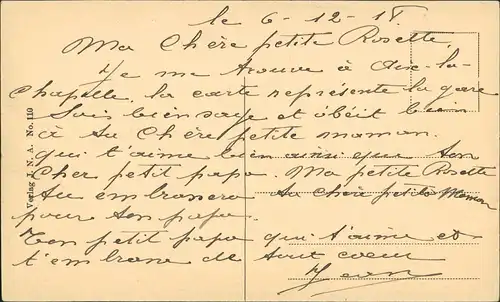 le 6-12-18
Ma Chère petite Rosette,
Je me trouve à Aix-la-
Chapelle. la carte représente la gare
Sois bien sage et obéit bien
à Su Chère petite maman.
qui t'aime bien ainsi que ton
Cher petit papa. Ma petite Rosette
tu embrassera Sa chère petite Maman
pour ton papa.
Ton petit papa qui t'aime et
t'embrasse de tout coeur
Jean
Verlag J. N. A. No. 110